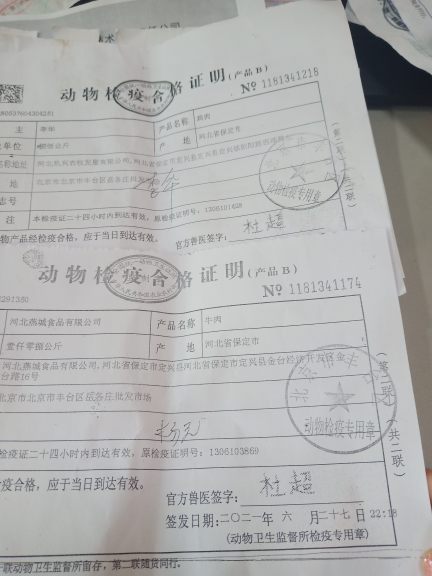 动物检疫合格证明(产品B)
№ 1181341218
主
产品名称
单位
产 地 河北省保定市
地 北京市北京市丰台区岳各庄批发市场
注 本检疫证二十四小时内到达有效，原检疫证明号：1306101628
物产品经检疫合格，应于当日到达有效。
官方兽医签字：杜超
动物检疫专用章
动物检疫合格证明(产品B)
№ 1181341174
2291350
河北燕城食品有限公司 产品名称 牛肉
壹仟零捌公斤 产 地 河北省保定市
河北燕城食品有限公司，河北省保定市定兴县金台经济开发区金
台路16号
北京市北京市丰台区岳各庄批发市场
检疫证二十四小时内到达有效，原检疫证明号：1306103869
检疫合格，应于当日到达有效。
官方兽医签字：杜超
签发日期：二〇二一年 六月二十七日 22:18
(动物卫生监督所检疫专用章)
动物检疫专用章
(第二联 共二联)
一联动物卫生监督所留存，第二联随货同行。